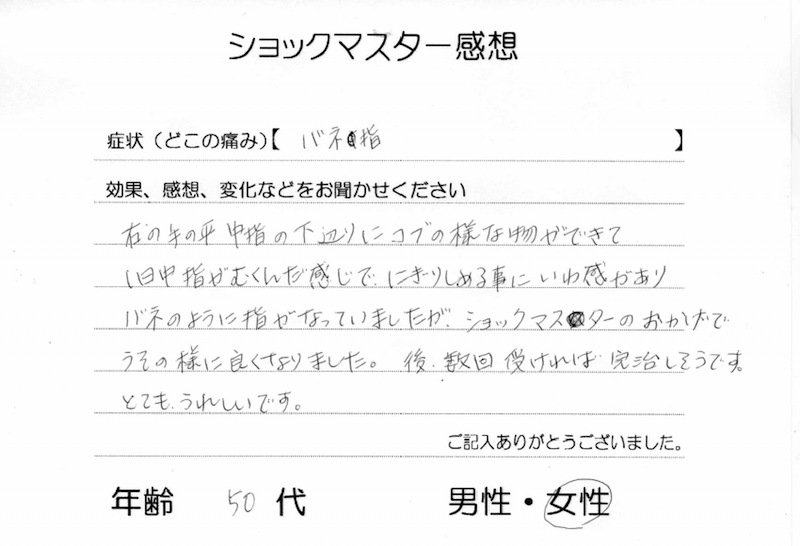 ショックマスター感想
症状（どこの痛み）【 バネ指 】
効果、感想、変化などをお聞かせください
右の手の平 中指の下辺りにコブの様な物ができて
1日中指がむくんだ感じで、にぎりしめる事にいわ感があり
バネのように指がなっていましたが、ショックマスターのおかげで
うその様に良くなりました。 後、数回 受ければ 完治しそうです。
とても、うれしいです。
ご記入ありがとうございました。
年齢 50 代 男性・女性